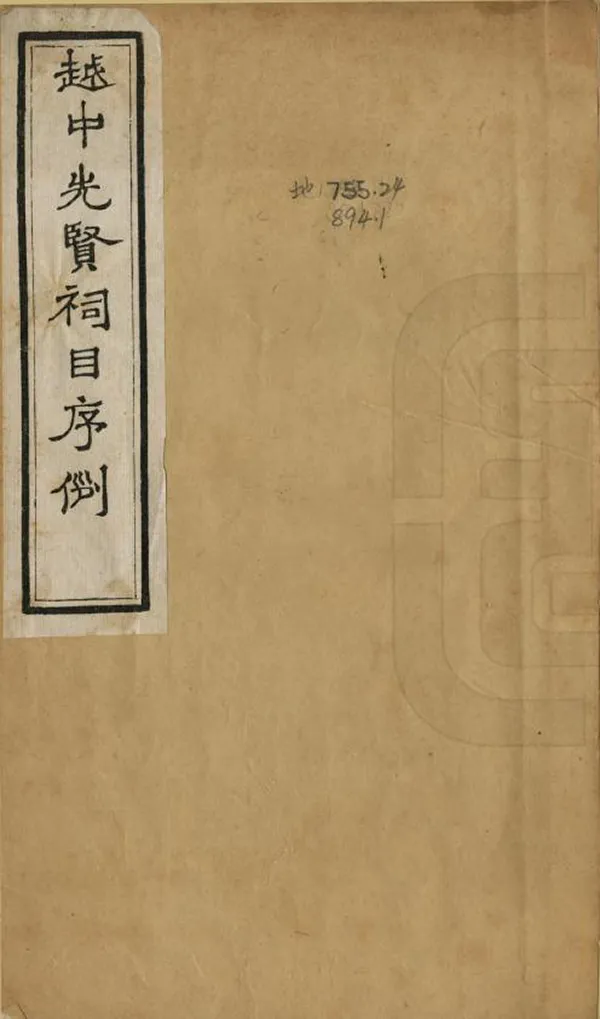 越中先賢祠目序例
地755.24
894.1